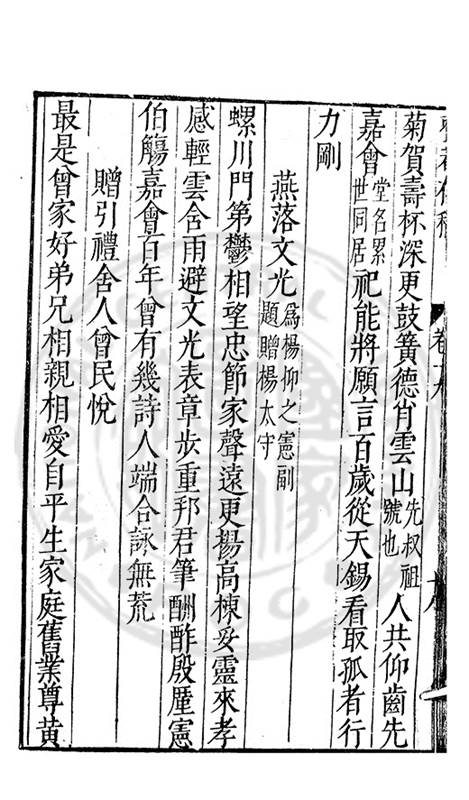 卷十九
菊賀壽杯深更鼓簧德肖雲山先叔祖號也人共仰齒先
嘉會堂名累世同居祀能將願言百歲從天錫看取孤者行
力剛
燕落文光爲楊仰之憲副題贈楊太守
螺川門第鬱相望忠節家聲遠更揚高棟妥靈來孝
感輕雲含雨避文光表章岁重邦君筆酬酢殷厪憲
伯觴嘉會百年曾有幾詩人端合詠無荒
贈引禮舍人曾民悅
最是曾家好弟兄相親相愛自平生家庭舊業尊黃